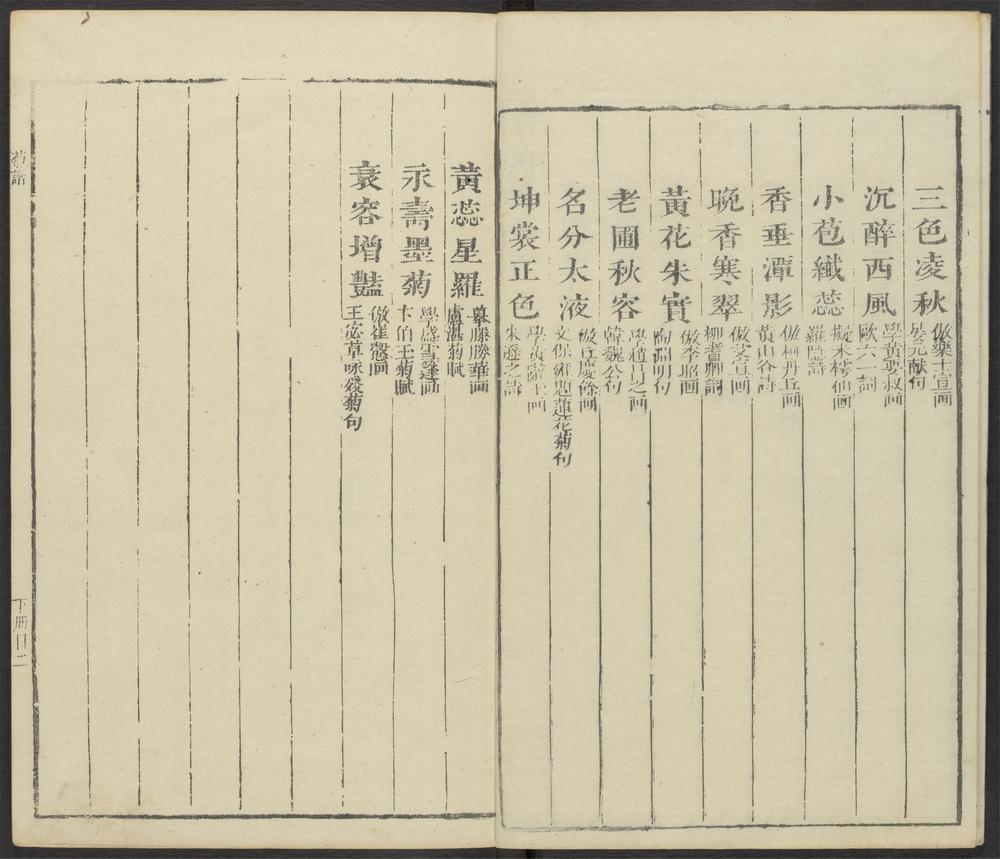 三色凌秋 倣樂士宣画 晏元献句
沉醉西風 學黄要叔画 歐六一詞
小苞纖蕊 擬宋檪仙画 羅隱詩
香垂潭影 倣柯丹丘画 黄山谷詩
晩香寒翠 倣艾宣画 柳耆卿詞
黃花朱實 倣李昭画 陶淵明句
老圃秋容 學趙昌之画 韓魏公句
名分太液 倣丘慶餘画 文保雍題蓮花菊句
坤裳正色 學黄 画 朱遜之詩
黃蕊星羅 摹滕勝華画 盧諶菊賦
永壽墨菊 學盛雪蓬画 卞伯玉菊賦
衰容增豔 倣崔慤画 王宓草咏殘菊句
菊譜
下册目二